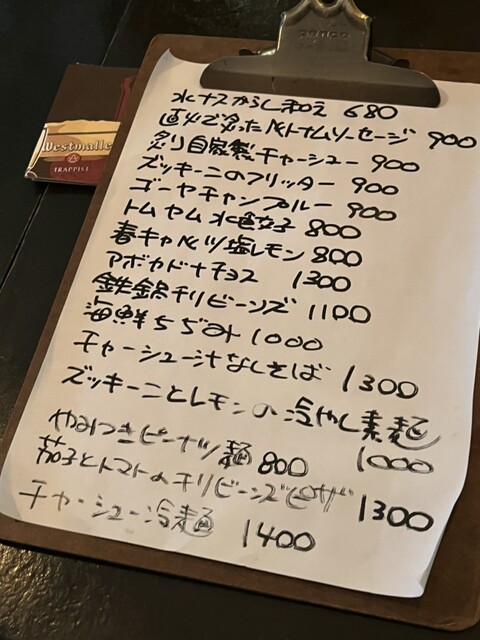 水ナスからし和え 680
直火で炙ったベトナムソーセージ 900
炙り自家製チャーシュー 900
ズッキーニのフリッター 900
ゴーヤチャンプルー 900
トムヤム水餃子 800
春キャベツ塩レモン 800
アボカドナチョス 1300
鉄鍋チリビーンズ 1100
海鮮ちぢみ 1000
チャーシュー汁なしそば 1300
ズッキーニとレモンの冷やし素麺 1000
やみつきピーナツ麺 800
茄子とトマトのチリビーンズピザ 1300
チャーシュー冷麺 1400
Westmalle
TRAPPIST